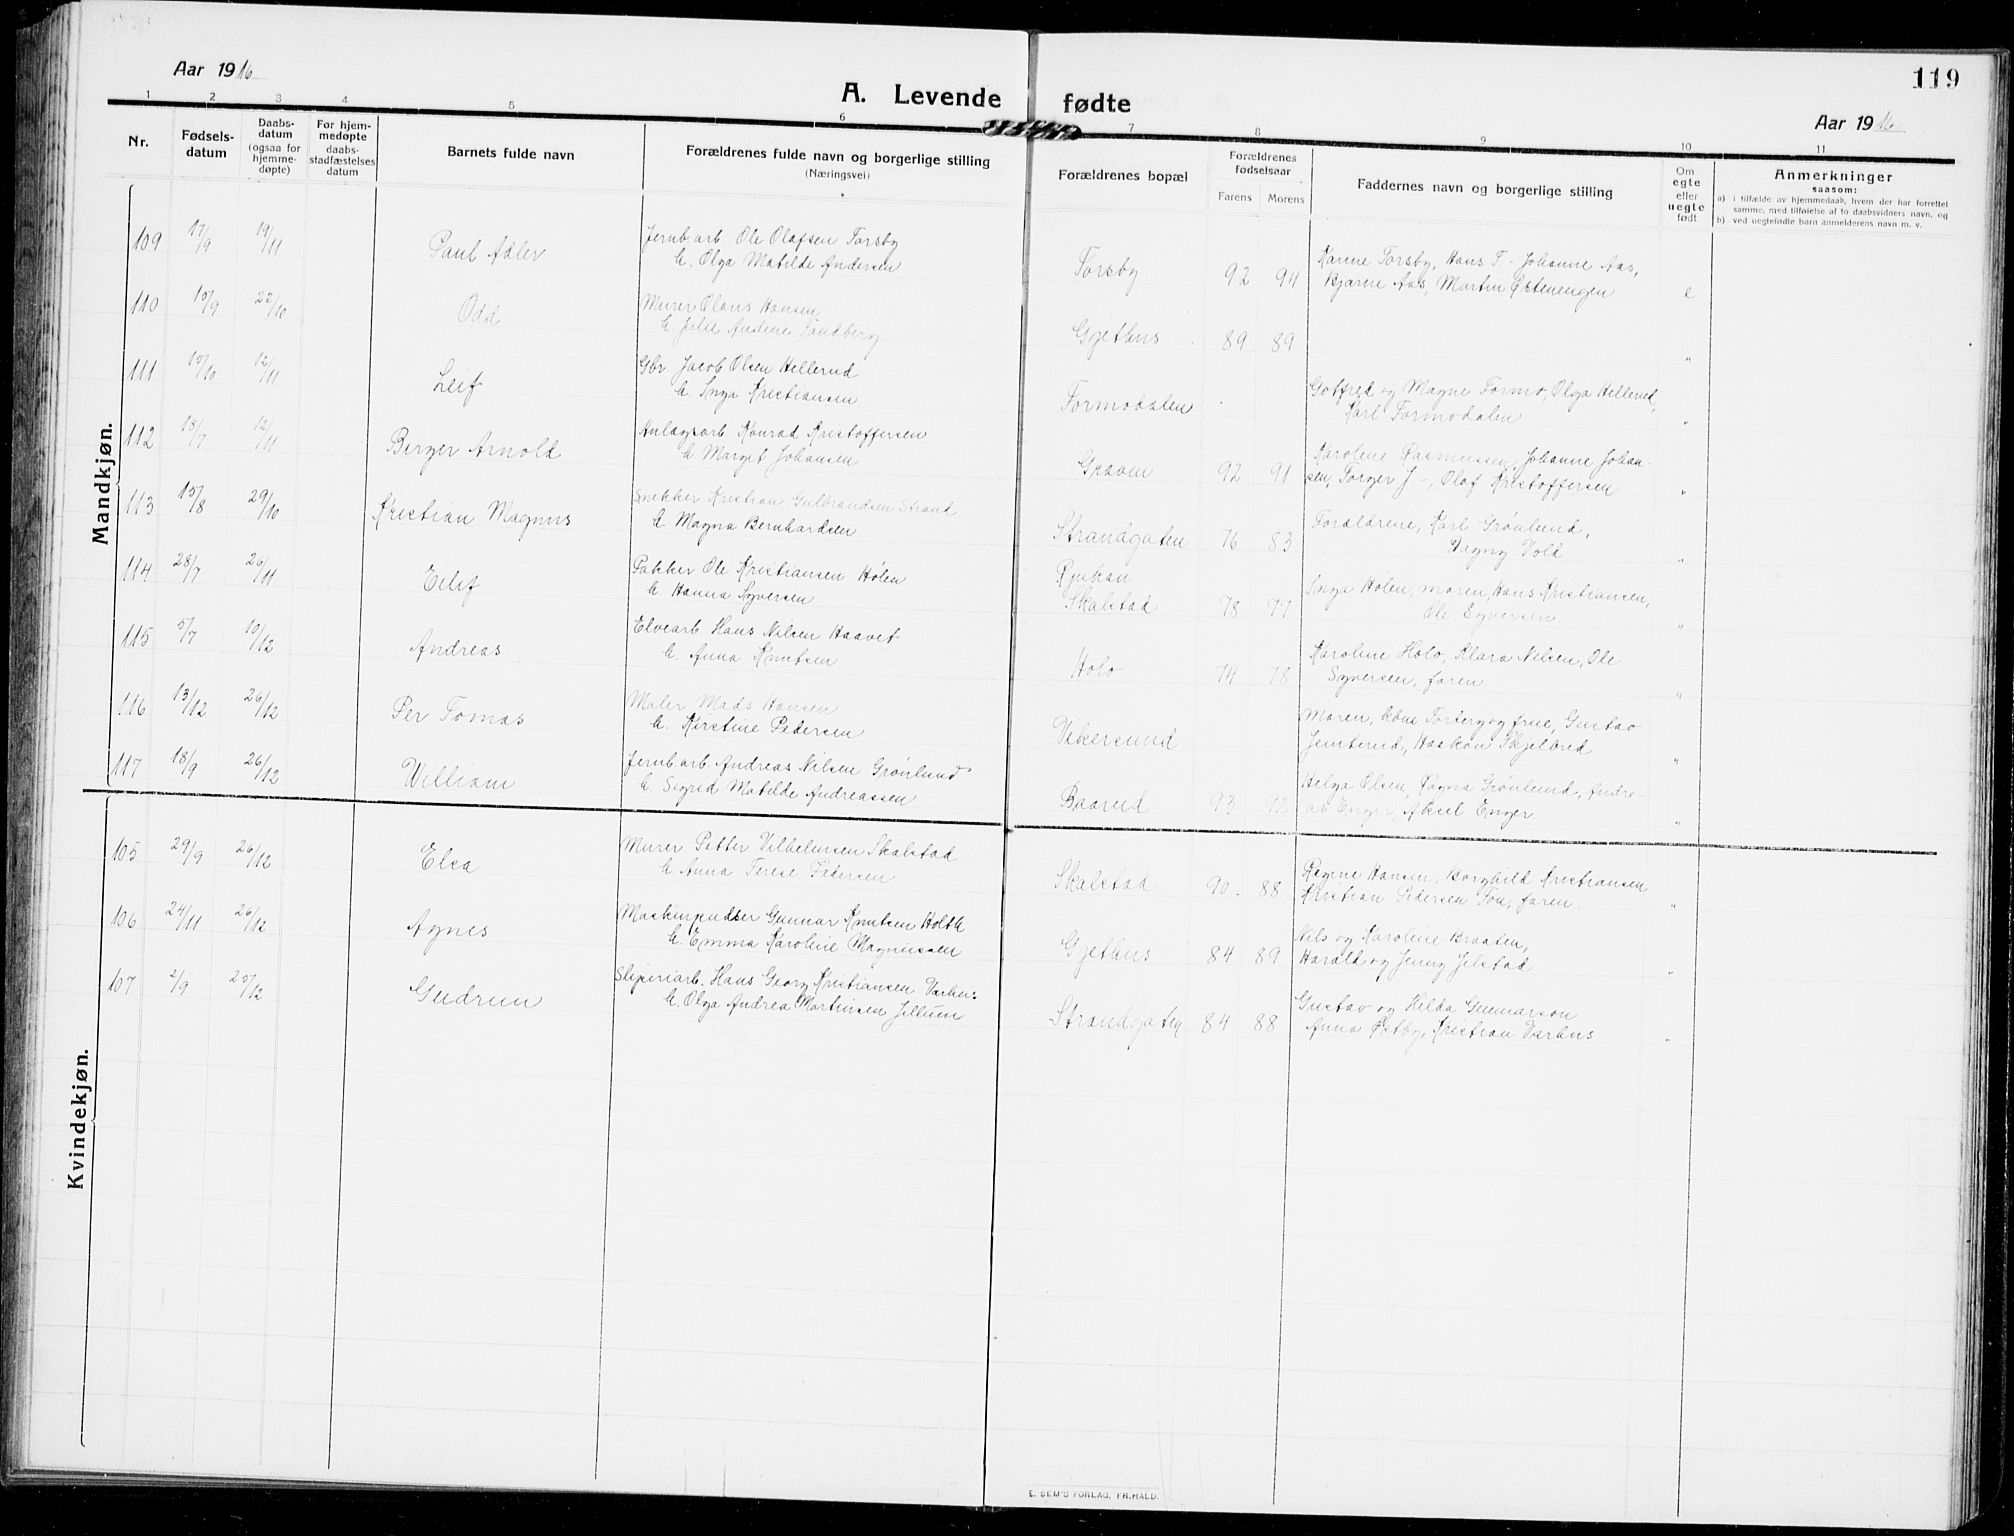 Aar 1916
A. Levende fødte
119
Aar 1916
1 2 3 4 5 6 7 8 9 10 11
Nr.
Fødsels-
datum
Daabs-
datum
(ogsaa for
hjemme-
døpte)
For hjem-
medøpte
daabs-
stadfæstelses
datum
Barnets fulde navn
Forældrenes fulde navn og borgerlige stilling
(Næringsvei)
Forældrenes bopæl
Forældrenes
fødselsaar
Farens Morens
Faddernes navn og borgerlige stilling
Om
egte
eller
uegte
født
Anmerkninger
saasom:
a) i tilfælde av hjemmedaab, hvem der har forrettet
samme, med tilføielse af to daabsvidners navn, og
b) ved uegtefødte barn anmelderens navn m. v.
Mandkjøn.
109 17/9 19/11 Paul Adler Jernb.arb. Ole Olafsen Torsby
h. Olga Matilde Andersen
Torsby 92 94 Hanne Torsby, Hans T- Johanne Aas,
Bjarne Aas, Martin Østenengen e
110 15/9 22/10 Odd Murer Olaus Hansen
h. Julie Andrine Sandberg
Gjethus 89 89 "
111 15/10 12/11 Leif Gbr Jacob Olsen Hellerud
h. Inga Kristiansen
Formodalen Gotfred og Magne Formo, Olga Hellerud,
Karl Formodalen "
112 15/7 12/11 Birger Arnold Anlægsarb Konrad Kristoffersen
h Margit Johansen
Graven 92 91 Karoline Rasmussen, Johanne Johan-
sen, Torger J-, Olaf Kristoffersen "
113 15/8 29/10 Kristian Magnus Snekker Kristian Gulbrandsen Strand
h. Magna Bernhardsen
Strandgaten 76 83 Forældrene, Karl Grønlund,
Dagny Vold "
114 28/7 26/11 Eilif Pakker Ole Kristiansen Holen
h. Hanna Syversen
Rjukan
Skalstad 78 77 Inga Holen, moren, Hans Kristiansen,
Ole Syversen "
115 5/7 10/12 Andreas Elvearb. Hans Nilsen Haavet
h. Anna Knutsen
Holo 74 78 Karoline Holo, Klara Nilsen, Ole
Syversen, faren. "
116 13/12 26/12 Per Tomas Maler Mads Hansen
h. Kirstine Pedersen
Vikersund Moren, og frue, Gustav
Jemterud, Haakon Skjelbred "
117 18/9 26/12 William Jernb.arb Andreas Nilsen Grønlund
h. Sigrid Matilde Andreassen
Baarud 93 92 Helga Olsen, Ragna Grønlund, Andre-
as Enger, Aksel Enger "
Kvindekjøn.
105 29/9 26/12 Elsa Murer Petter Vilhelmsen Skalstad
h. Anna Terese Pedersen
Skalstad 90. 88 Regine Hansen, Borghild Kristiansen
Kristian Pedersen Foss, faren. "
106 24/11 26/12 Agnes Maskinpudser Gunnar Knutsen Holth
h. Emma Karoline Magnussen
Gjethus 84 89 Nils og Karoline Braaten,
Harald og Jenny Jelstad "
107 2/9 25/12 Gudrun Sliperiarb. Hans Georg Kristiansen Varhus
h. Olga Andrea Martinsen Jellum
Strandgaten 84 88 Gustav og Hilda Gunnarson
Anna Østby, Kristian Varhus "
E. SEM'S FORLAG, FR.HALD.